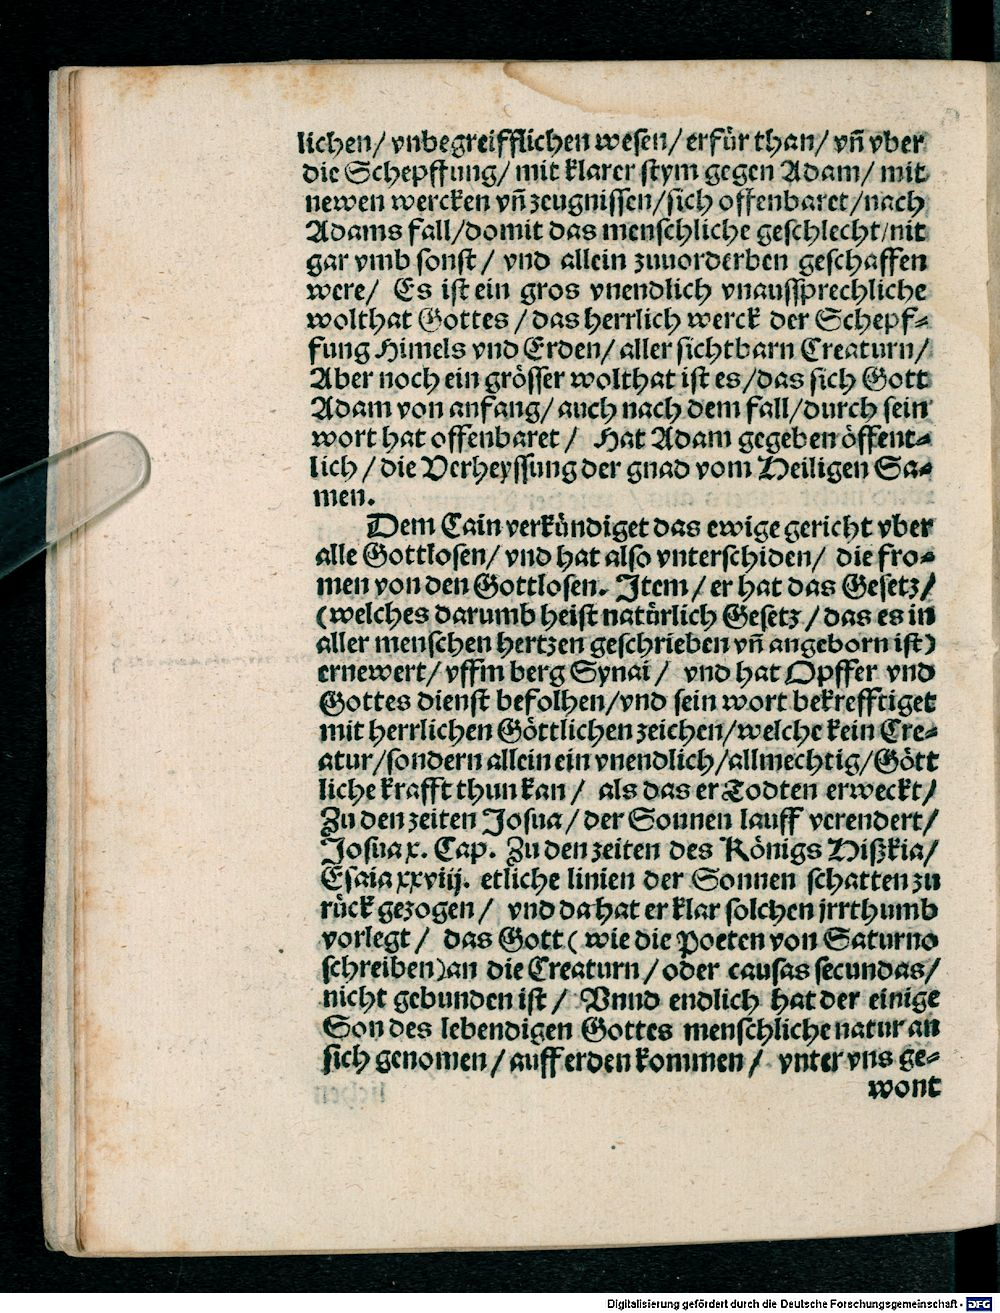 lichen/ vnbegreifflichen wesen/ erfür than/ vñ vber
die Schepffung/ mit klarer stym gegen Adam/ mit
newen wercken vñ zeugnissen/ sich offenbaret/ nach
Adams fall/ domit das menschliche geschlecht/ nit
gar vmb sonst/ vnd allein zuuorderben geschaffen
were/ Es ist ein gros vnendlich vnaussprechliche
wolthat Gottes/ das herrlich werck der Schepf⸗
fung Himels vnd Erden/ aller sichtbarn Creaturn/
Aber noch ein grösser wolthat ist es/ das sich Gott
Adam von anfang/ auch nach dem fall/ durch sein
wort hat offenbaret/ Hat Adam gegeben öffent⸗
lich/ die Verheyssung der gnad vom Heiligen Sa⸗
men.
Dem Cain verkündiget das ewige gericht vber
alle Gottlosen/ vnd hat also vnterschiden/ die fro⸗
men von den Gottlosen. Item/ er hat das Gesetz/
(welches darumb heist natürlich Gesetz/ das es in
aller menschen hertzen geschrieben vñ angeborn ist)
ernewert/ vffm berg Synai/ vnd hat Opffer vnd
Gottes dienst befolhen/ vnd sein wort bekrefftiget
mit herrlichen Göttlichen zeichen/ welche kein Cre⸗
atur/ sondern allein ein vnendlich/ allmechtig/ Gött
liche krafft thun kan/ als das er Todten erweckt/
Zu den zeiten Josua/ der Sonnen lauff verendert/
Josua x. Cap. Zu den zeiten des Königs Hißkia/
Esaia xxviij. etliche linien der Sonnen schatten zu
rück gezogen/ vnd da hat er klar solchen jrrthumb
vorlegt/ das Gott (wie die Poeten von Saturno
schreiben) an die Creaturn/ oder causas secundas/
nicht gebunden ist/ Vnnd endlich hat der einige
Son des lebendigen Gottes menschliche natur an
sich genomen/ auff erden kommen/ vnter vns ge⸗
wont
Digitalisierung gefördert durch die Deutsche Forschungsgemeinschaft - DFG